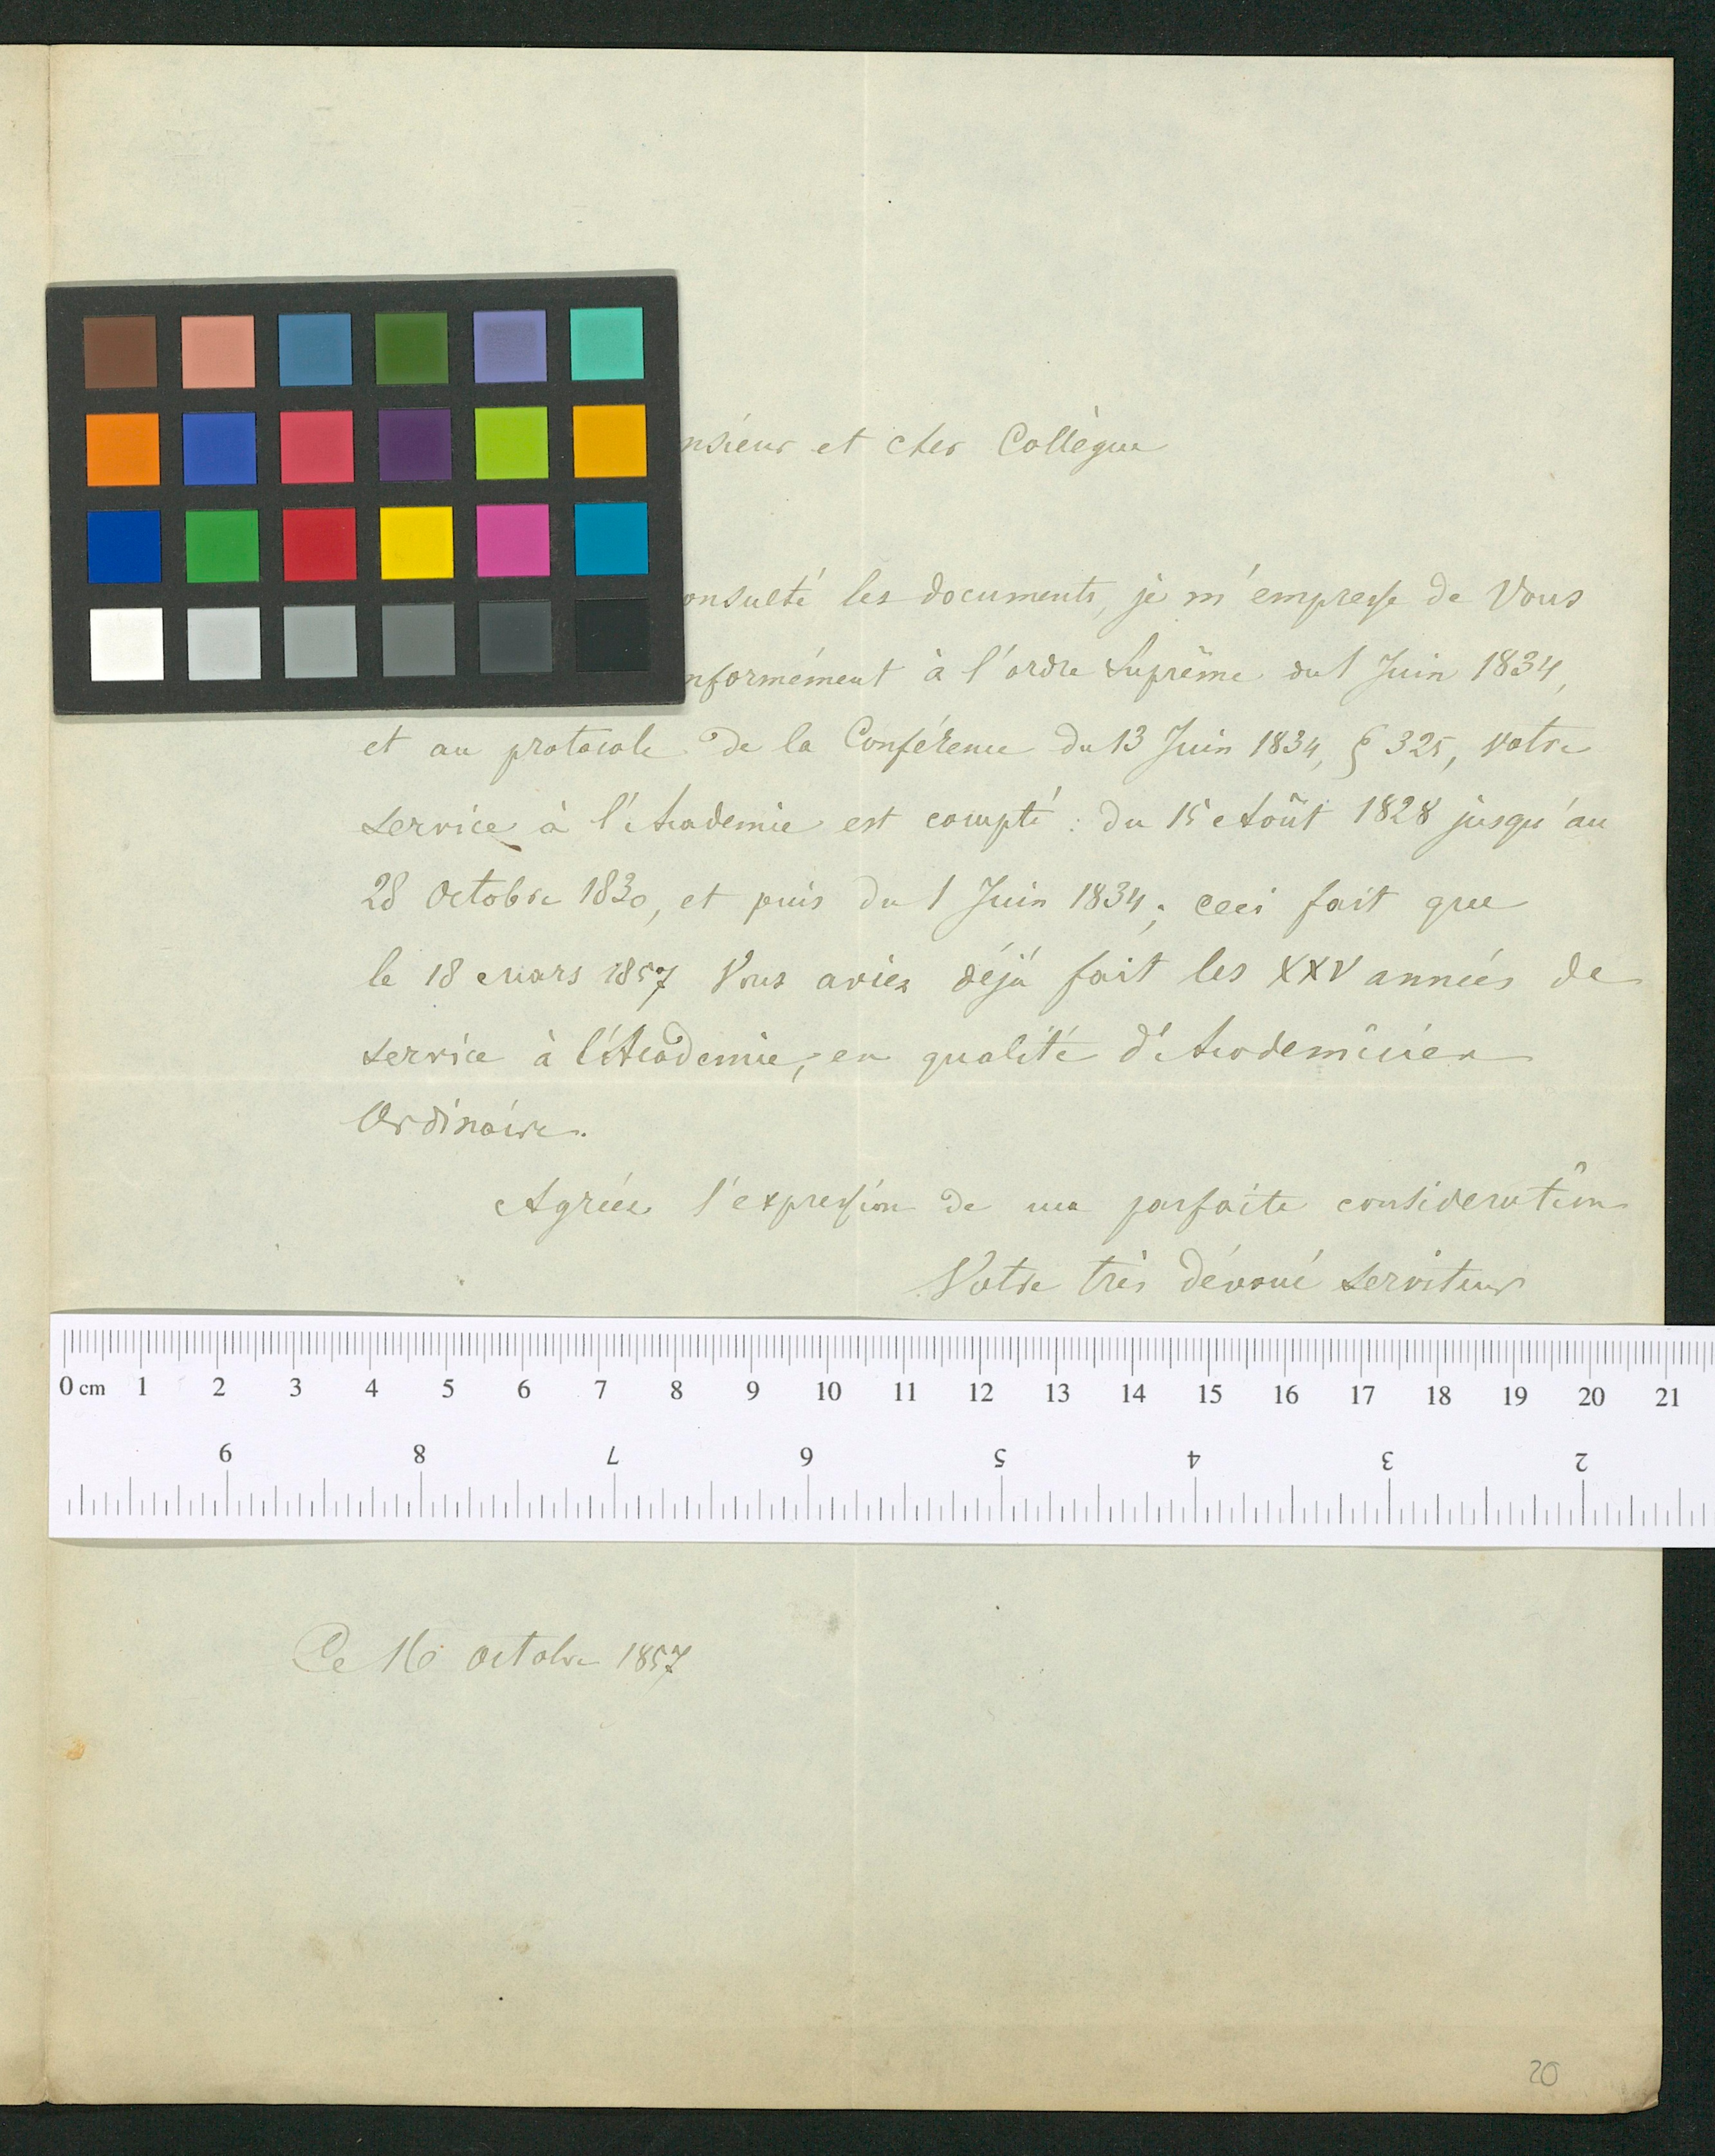 nsieur et cher Collègue
onsulté les documents, je m'empresse de Vous
nformément à l'ordre Suprême du 1 Juin 1834,
et au protocole de la Conférence du 13 Juin 1834, § 325, votre
service à l'Academie est compté : du 15 Août 1828 jusqu'au
28 Octobre 1830, et puis du 1 Juin 1834; ceci fait que
le 18 Mars 1857 Vous aviez déjà fait les XXV années de
service à l'Academie, en qualité d'Academicien
Ordinaire.
Agréez l'expression de ma parfaite consideration
Votre très dévoué serviteur
0 cm 1 2 3 4 5 6 7 8 9 10 11 12 13 14 15 16 17 18 19 20 21
9 8 7 6 5 4 3 2
Ce 16 Octobre 1857
20